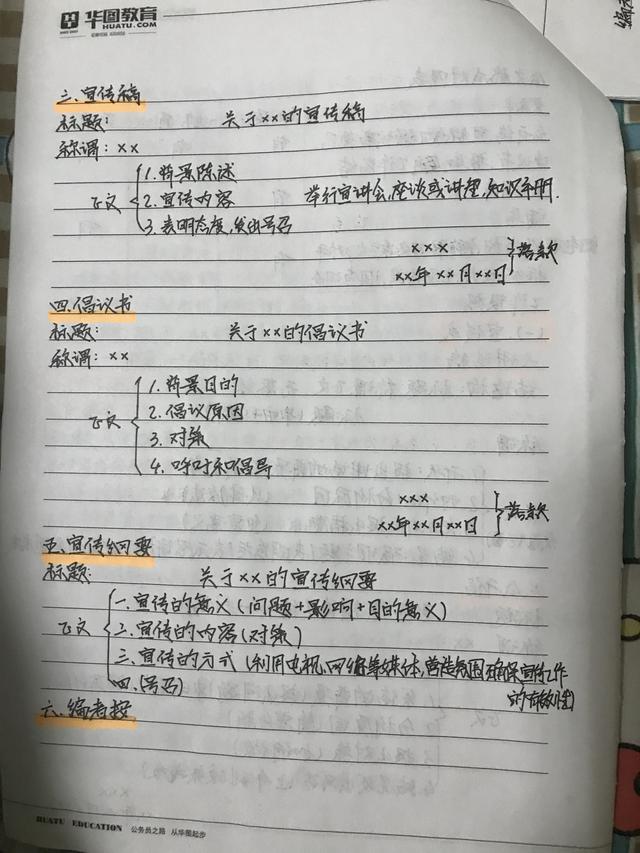 华图教育
HUATU.COM
三.宣传稿
标题: 关于××的宣传稿
称谓: ××
正文
1.背景陈述
2.宣传内容 举行宣讲会,座谈或讲理,知识手册.
3.表明态度,发出号召
×××
××年××月××日
落款
四.倡议书
标题: 关于××的倡议书
称谓: ××
正文
1.背景目的
2.倡议原因
3.对策
4.呼吁和倡导
×××
××年××月××日
落款
五.宣传纲要
标题: 关于××的宣传纲要
正文
一.宣传的意义(问题+影响+目的意义)
二.宣传的内容(对策)
三.宣传的方式(利用电视,网络等媒体,营造氛围确保宣传工作
的有效性)
四.(号召)
六.编者按
HUATU EDUCATION 公务员之路 从华图起步